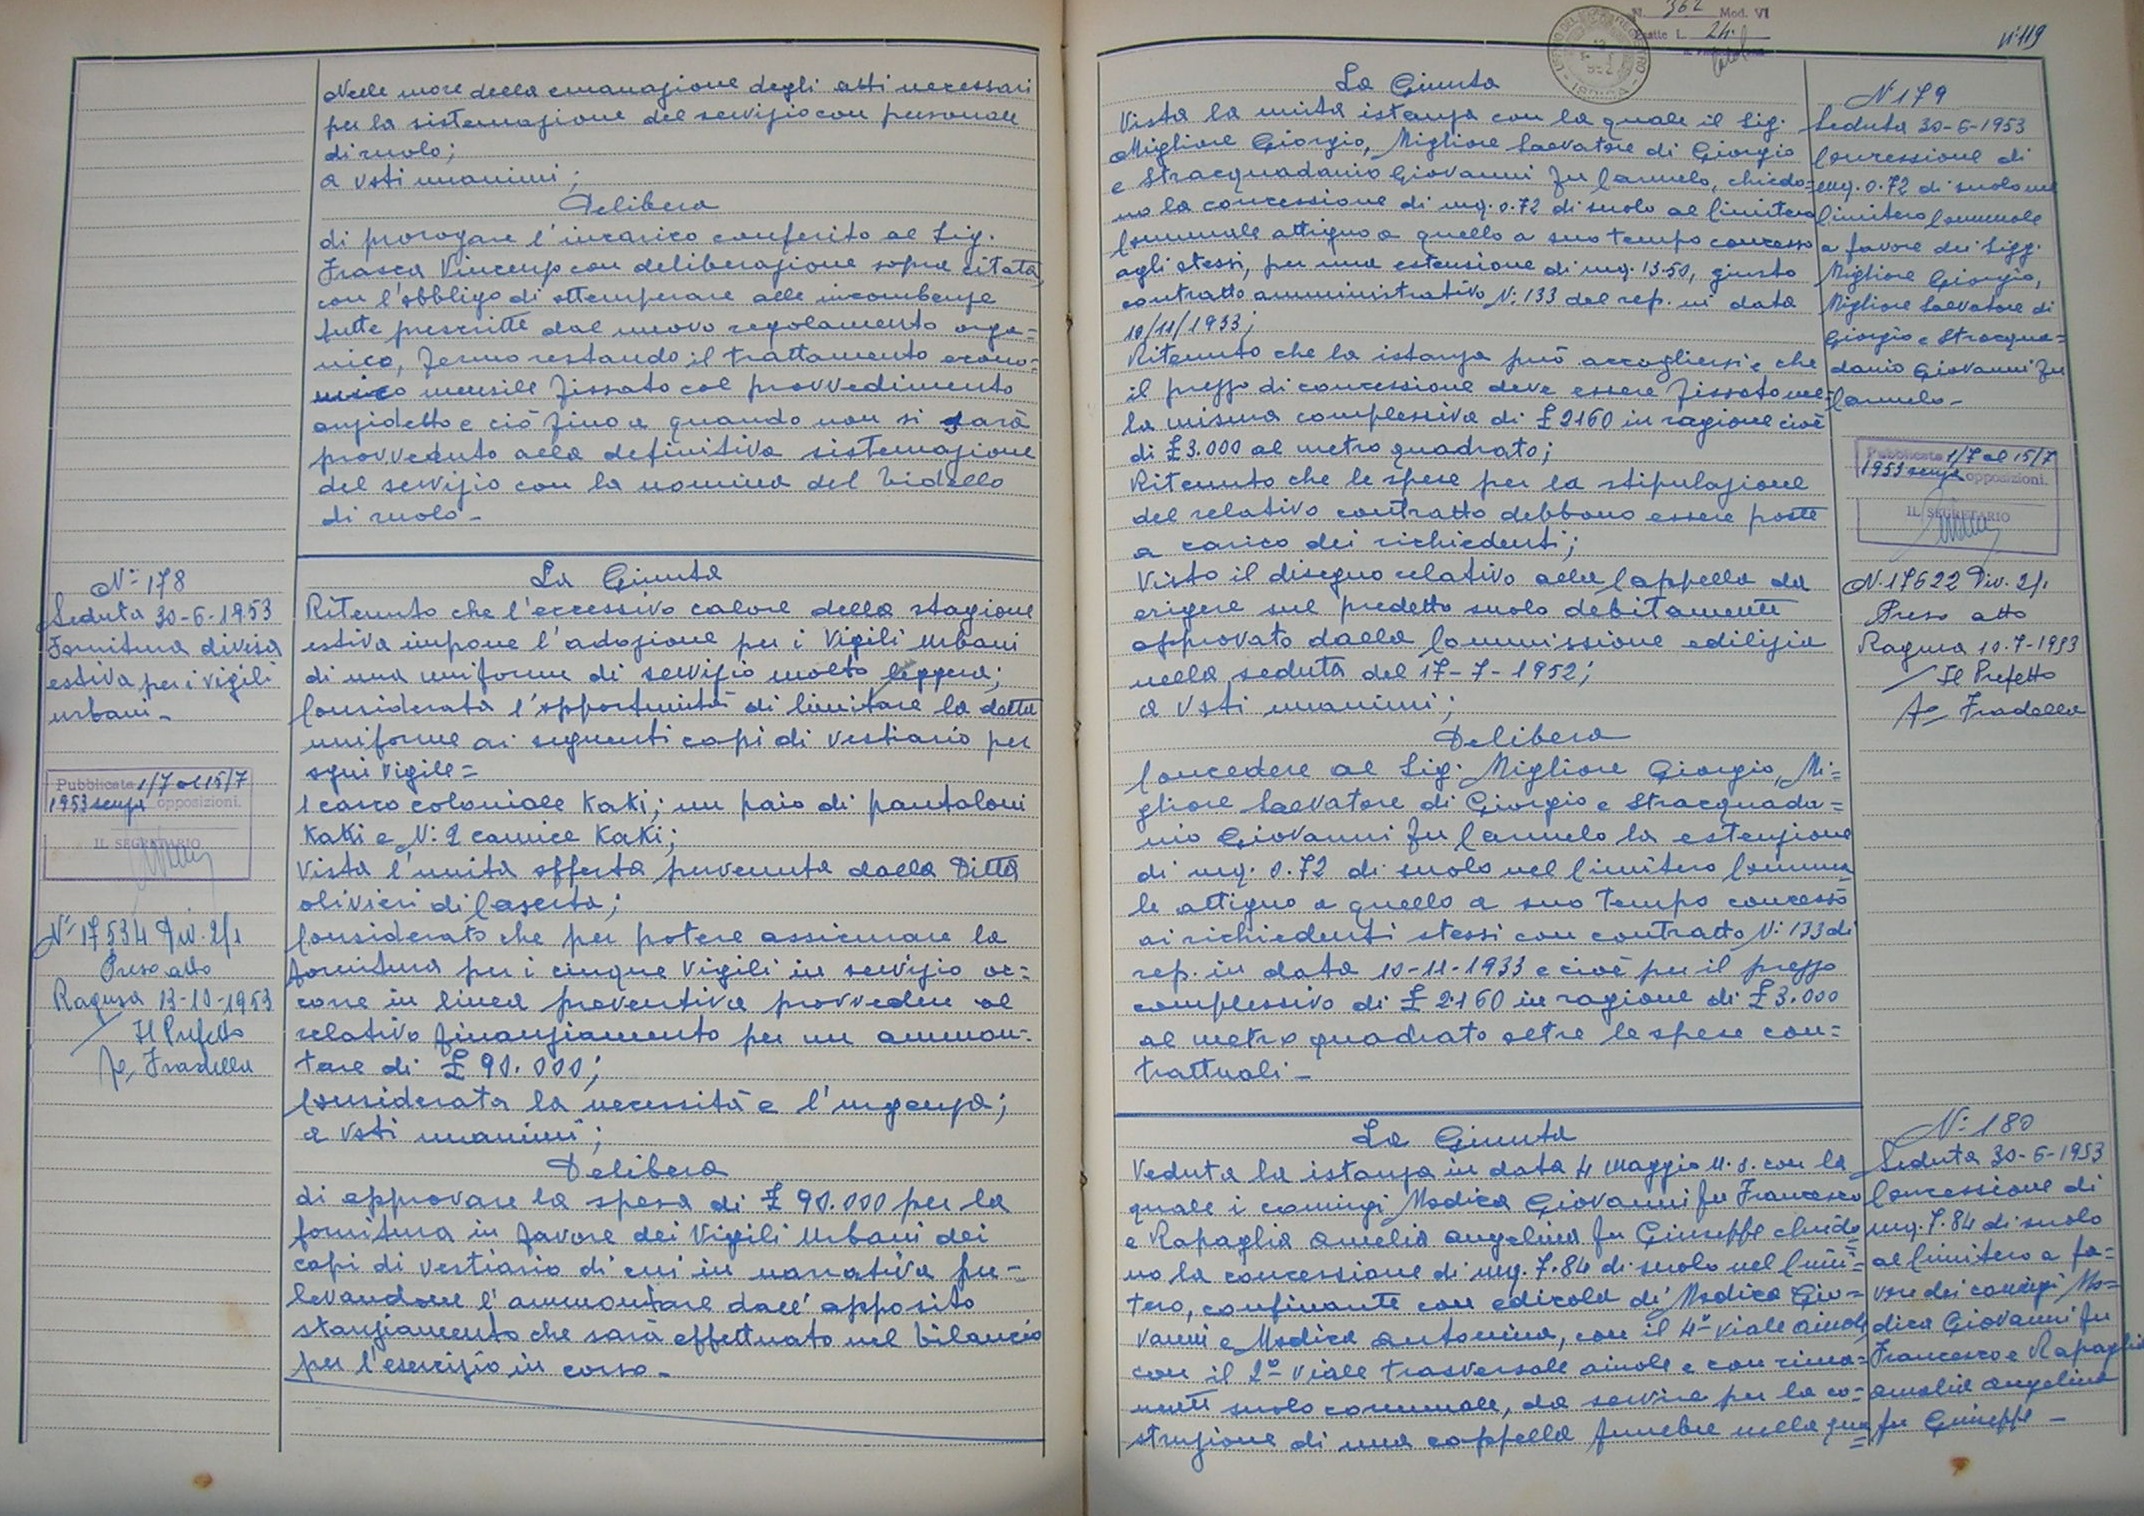 Nelle more della emanazione degli atti necessari
per la sistemazione del servizio con personale
di ruolo;
a voti unanimi;
Delibera
di prorogare l'incarico conferito al Sig.
Frasca Vincenzo con deliberazione sopra citata,
con l'obbligo di ottemperare alle incombenze
tutte prescritte dal nuovo regolamento orga=
nico, fermo restando il trattamento econo=
mico mensile fissato col provvedimento
anzidetto e ciò fino a quando non si sarà
provveduto alla definitiva sistemazione
del servizio con la nomina del bidello
di ruolo -
N° 178
Seduta 30-6-1953
Fornitura divisa
estiva per i vigili
urbani -
Pubblicata 1/7 al 15/7
1953 senza opposizioni.
IL SEGRETARIO
N° 17534 Div. 2/1
Preso atto
Ragusa 13-10-1953
Il Prefetto
Fradella
La Giunta
Ritenuto che l'eccessivo calore della stagione
estiva impone l'adozione per i Vigili Urbani
di una uniforme di servizio molto leggera;
Considerata l'opportunità di limitare la detta
uniforme ai seguenti capi di vestiario per
ogni vigile=
1 casco coloniale Kaki; un paio di pantaloni
Kaki e N: 2 camice Kaki;
Vista l'unita offerta pervenuta dalla Ditta
Olivieri di Caserta;
Considerato che per potere assicurare la
fornitura per i cinque Vigili in servizio oc=
corre in linea preventiva provvedere al
relativo finanziamento per un ammon=
tare di £ 90.000;
Considerata la necessità e l'urgenza;
a voti unanimi;
Delibera
di approvare la spesa di £ 90.000 per la
fornitura in favore dei Vigili Urbani dei
capi di vestiario di cui in narrativa pre-
levandone l'ammontare dall'apposito
stanziamento che sarà effettuato nel bilancio
per l'esercizio in corso -
N. 362 Mod. VI
Esatte L. 24.
N: 119
La Giunta
Vista la unita istanza con la quale il Sig.
Migliore Giorgio, Migliore Salvatore di Giorgio
e Stracquadanio Giovanni fu Carmelo, chiedo=
no la concessione di mq. 0.72 di suolo al Cimitero
Comunale attiguo a quello a suo tempo concesso
agli stessi, per una estensione di mq. 13.50, giusto
contratto amministrativo N: 133 del rep. in data
10/11/1933;
Ritenuto che la istanza può accogliersi e che
il prezzo di concessione deve essere fissato nel=
la misura complessiva di £ 2160 in ragione cioè
di £ 3.000 al metro quadrato;
Ritenuto che le spese per la stipulazione
del relativo contratto debbono essere poste
a carico dei richiedenti;
Visto il disegno relativo alla Cappella da
erigere sul predetto suolo debitamente
approvato dalla Commissione edilizia
nella seduta del 17-7-1952;
a voti unanimi;
Delibera
Concedere al Sig. Migliore Giorgio, Mi=
gliore Salvatore di Giorgio e Stracquada=
nio Giovanni fu Carmelo la estensione
di mq. 0.72 di suolo nel Cimitero Comuna
le attiguo a quello a suo tempo concesso
ai richiedenti stessi con contratto N: 133 di
rep. in data 10-11-1933 e cioè per il prezzo
complessivo di £ 2160 in ragione di £ 3.000
al metro quadrato oltre le spese con=
trattuali -
N 179
Seduta 30-6-1953
Concessione di
mq. 0.72 di suolo nel
Cimitero Comunale
a favore dei Sigg.
Migliore Giorgio,
Migliore Salvatore di
Giorgio e Stracqua=
danio Giovanni fu
Carmelo -
Pubblicata 1/7 al 15/7
1953 senza opposizioni.
IL SEGRETARIO
N. 17622 Div. 2/1
Preso atto
Ragusa 10-7-1953
Il Prefetto
Fradella
La Giunta
Veduta la istanza in data 4 Maggio u.s. con la
quale i coniugi Modica Giovanni fu Francesco
e Rapaglia Amelia Angelina fu Giuseppe chiedo
no la concessione di mq. 7.84 di suolo nel Cimi=
tero, confinante con edicola di Modica Gio=
vanni e Modica Antonina, con il 4° viale aiuole,
con il 2° viale trasversale aiuole e con rima=
nente suolo comunale, da servire per la co=
struzione di una cappella funebre nella qua=
N: 180
Seduta 30-6-1953
Concessione di
mq. 7.84 di suolo
al Cimitero a fa=
vore dei coniugi Mo=
dica Giovanni fu
Francesco e Rapaglia
Amelia Angelina
fu Giuseppe -